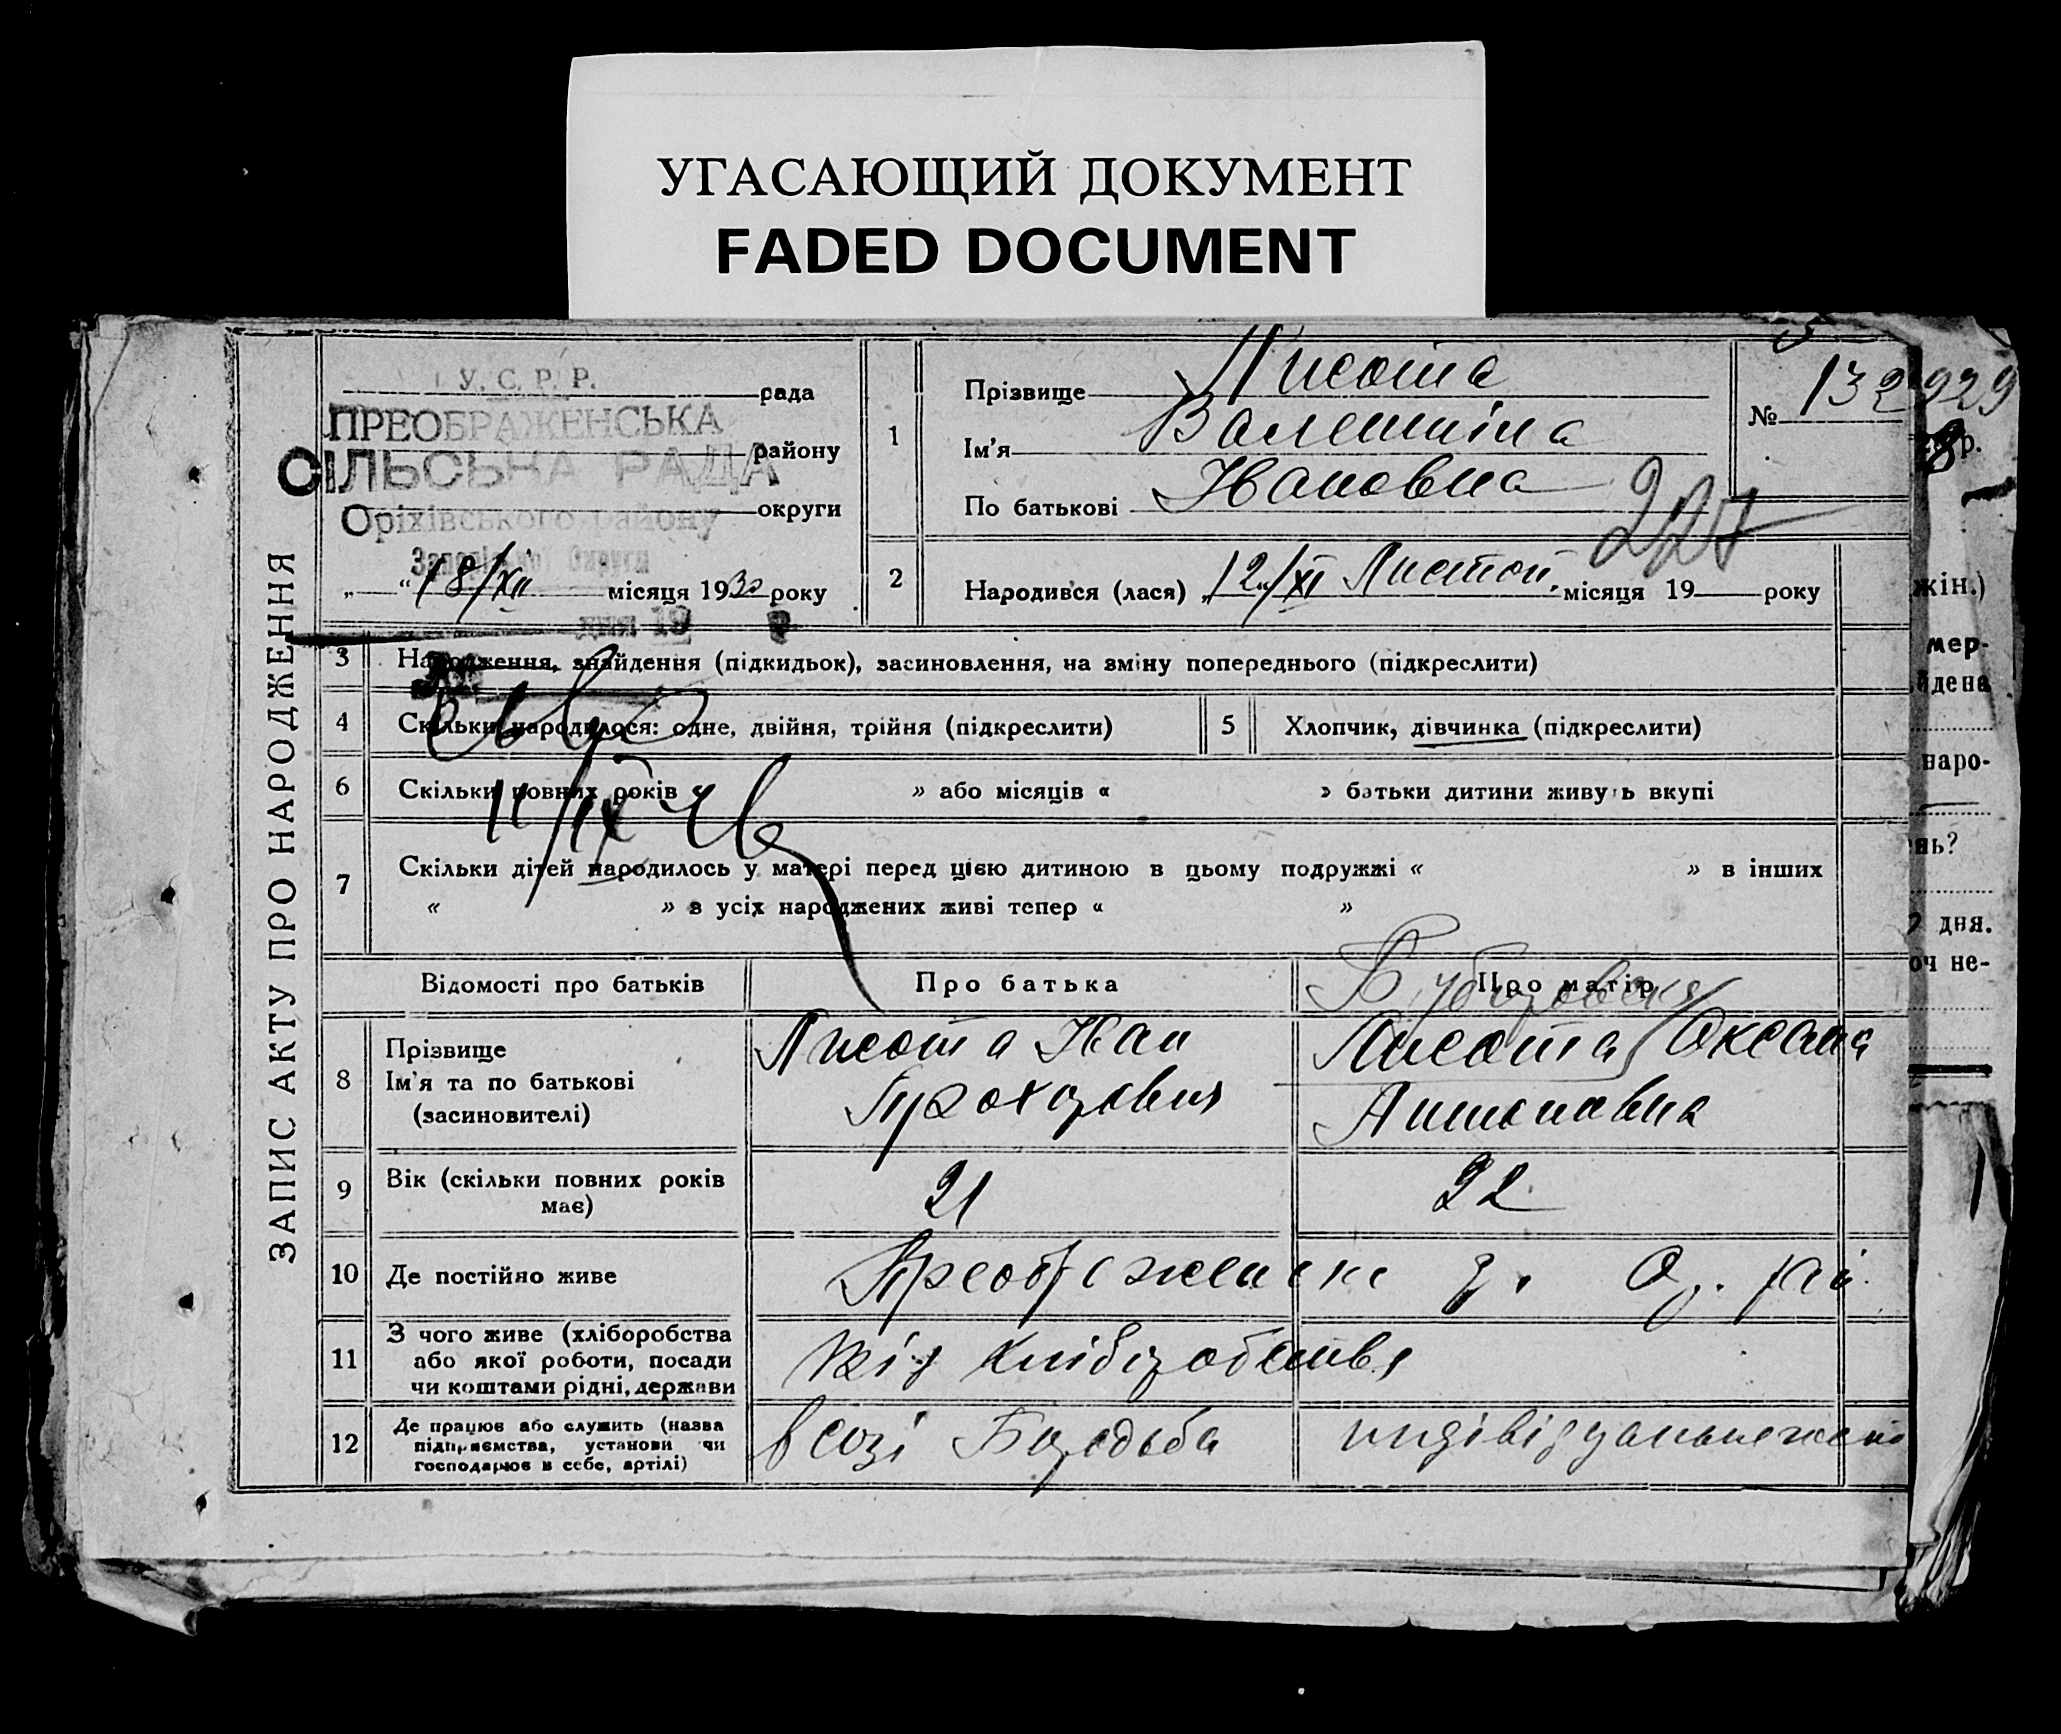 УГАСАЮЩИЙ ДОКУМЕНТ
FADED DOCUMENT
ЗАПИС АКТУ ПРО НАРОДЖЕННЯ
У. С. Р. Р.
рада
ПРЕОБРАЖЕНСЬКА
району
СІЛЬСЬКА РАДА
округи
Оріхівського району
Запорізької Округи
„ “ 18/XII місяця 1930 року
1
Прізвище Лисота
Ім'я Валентина
По батькові Івановна
№ 132
929
р.
227
2
Народився (лася) „12“/XI Листоп. місяця 19 року
3 Народження, знайдення (підкидьок), засиновлення, на зміну попереднього (підкреслити)
4 Скільки народилося: одне, двійня, трійня (підкреслити)
5 Хлопчик, дівчинка (підкреслити)
6 Скільки повних років » або місяців « » батьки дитини живуть вкупі
11/IX
7 Скільки дітей народилось у матері перед цією дитиною в цьому подружжі « » в інших
« » в усіх народжених живі тепер « »
Відомості про батьків
Про батька
Про матір
8
Прізвище
Ім'я та по батькові
(засиновителі)
Лисота Иван
Прохорович
Лисота Оксана
Антоновна
9 Вік (скільки повних років
має)
21
22
10 Де постійно живе
Преображенка
11 З чого живе (хліборобства
або якої роботи, посади
чи коштами рідні, держави
від хліборобства
12 Де працює або служить (назва
підприємства, установи чи
господарює в себе, артілі)
в созі Боротьба
жін.)
мер-
йдена
наро-
нь?
дня.
оч не-